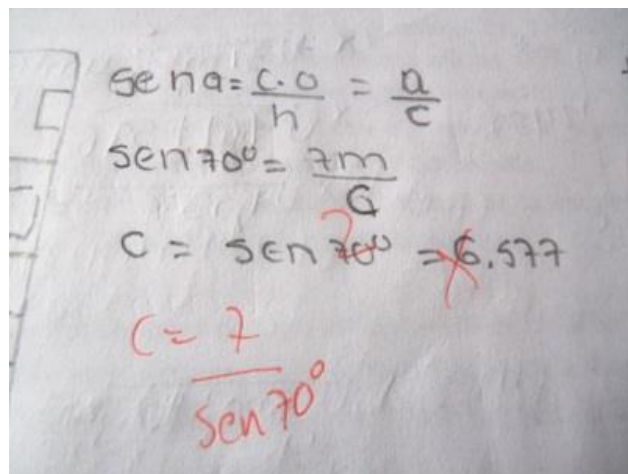 sen a = c.o/h = a/c
sen 70° = 7m/C
C = sen 70° = 6.577
?
C = 7/sen 70°